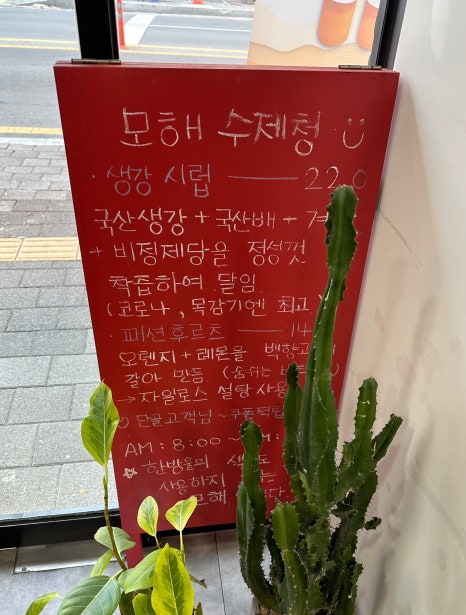 모해 수제청
· 생강 시럽 — 22.0
국산생강 + 국산배 +
+ 비정제당을 정성껏
착즙하여 달임
(코로나, 목감기엔 최고
· 패션후르츠 — 14
오렌지 + 레몬을
갈아 만듬
→ 자일로스 설탕 사용
○ 단골 고객님 ~
AM : 8:00 ~
☆ 한방울의
사용하지
모해